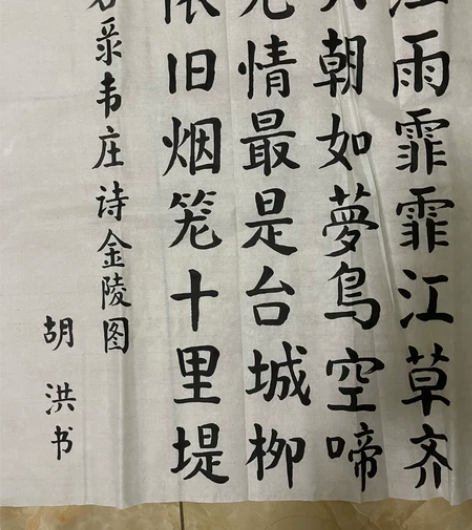 江雨霏霏江草齐
六朝如夢鳥空啼
无情最是台城柳
依旧烟笼十里堤
录韦庄诗金陵图
胡洪书